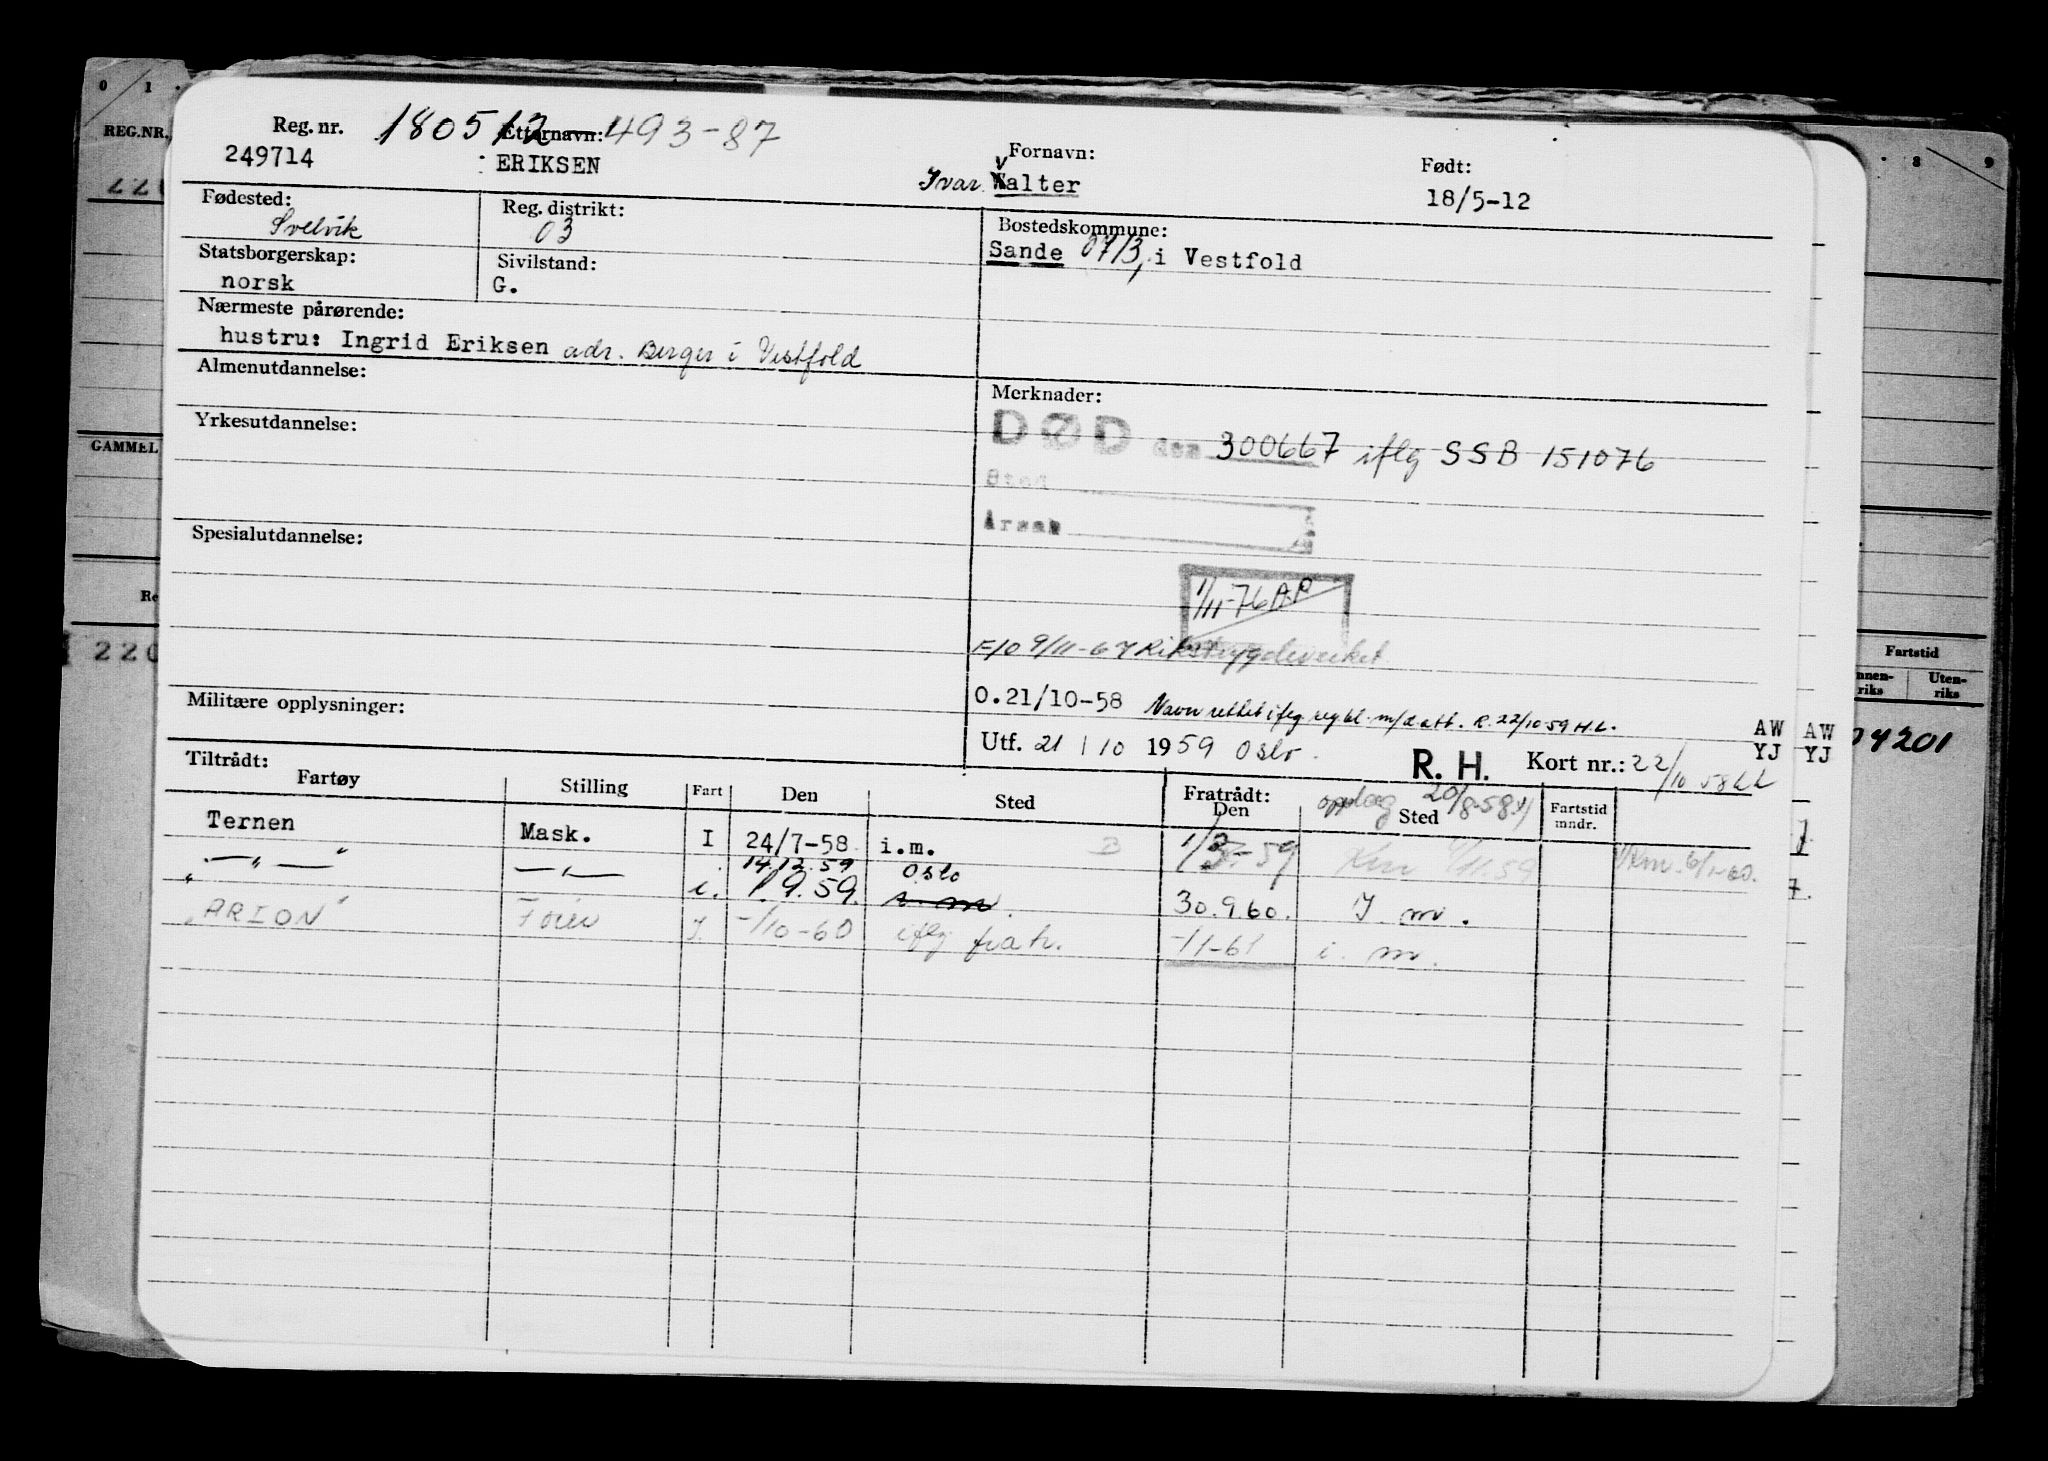 0 1
REG.NR.
220
GAMMEL
Re
220
Reg. nr. 180512 Etternavn: 493-87 Fornavn: Født:
249714 ERIKSEN Ivar Valter 18/5-12
Fødested: Reg. distrikt: Bostedskommune:
Svelvik 03 Sande 0713, i Vestfold
Statsborgerskap: Sivilstand:
norsk G.
Nærmeste pårørende:
hustru: Ingrid Eriksen adr. Berger i Vestfold
Almenutdannelse:
Yrkesutdannelse:
Spesialutdannelse:
Militære opplysninger:
Merknader:
DØD den 300667 iflg SSB 151076
Sted
Årsak
1/11-76 A.P
F/0 9/11-67 Rikstrygdeverket
0.21/10-58 Navn rettet iflg reg bl. m/d att. R. 22/10 59 H.L.
Utf. 21/10 1959 Oslo.
R. H. Kort nr.: 22/10 58 LL
AW AW
YJ YJ
Tiltrådt: Fratrådt: opplag 20/8-58
Fartøy Stilling Fart Den Sted Den Sted Fartstid mndr.
Ternen Mask. I 24/7-58 i.m. B 1/3-59
—„— —„— 14.12.59 Oslo
i. 1.9.59. i. m. 30.9.60. I. m.
"ARION" I -/10-60 iflg fratr. -/1-61 i. m.
8 9
Fartstid
Uten-
riks
riks
4201
7.